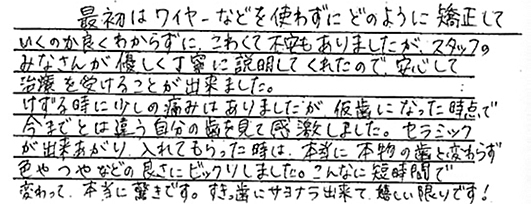 最初はワイヤーなどを使わずにどのように矯正して
いくのか良くわからずに、こわくて不安もありましたが、スタッフの
みなさんが優しく丁寧に説明してくれたので、安心して
治療を受けることが出来ました。
けずる時に少しの痛みはありましたが、仮歯になった時点で
今までとは違う自分の歯を見て感激しました。セラミック
が出来あがり、入れてもらった時は、本当に本物の歯と変わらず
色やつやなどの良さにビックリしました。こんなに短時間で
変わって、本当に驚きです。すきっ歯にサヨナラ出来て、嬉しい限りです!